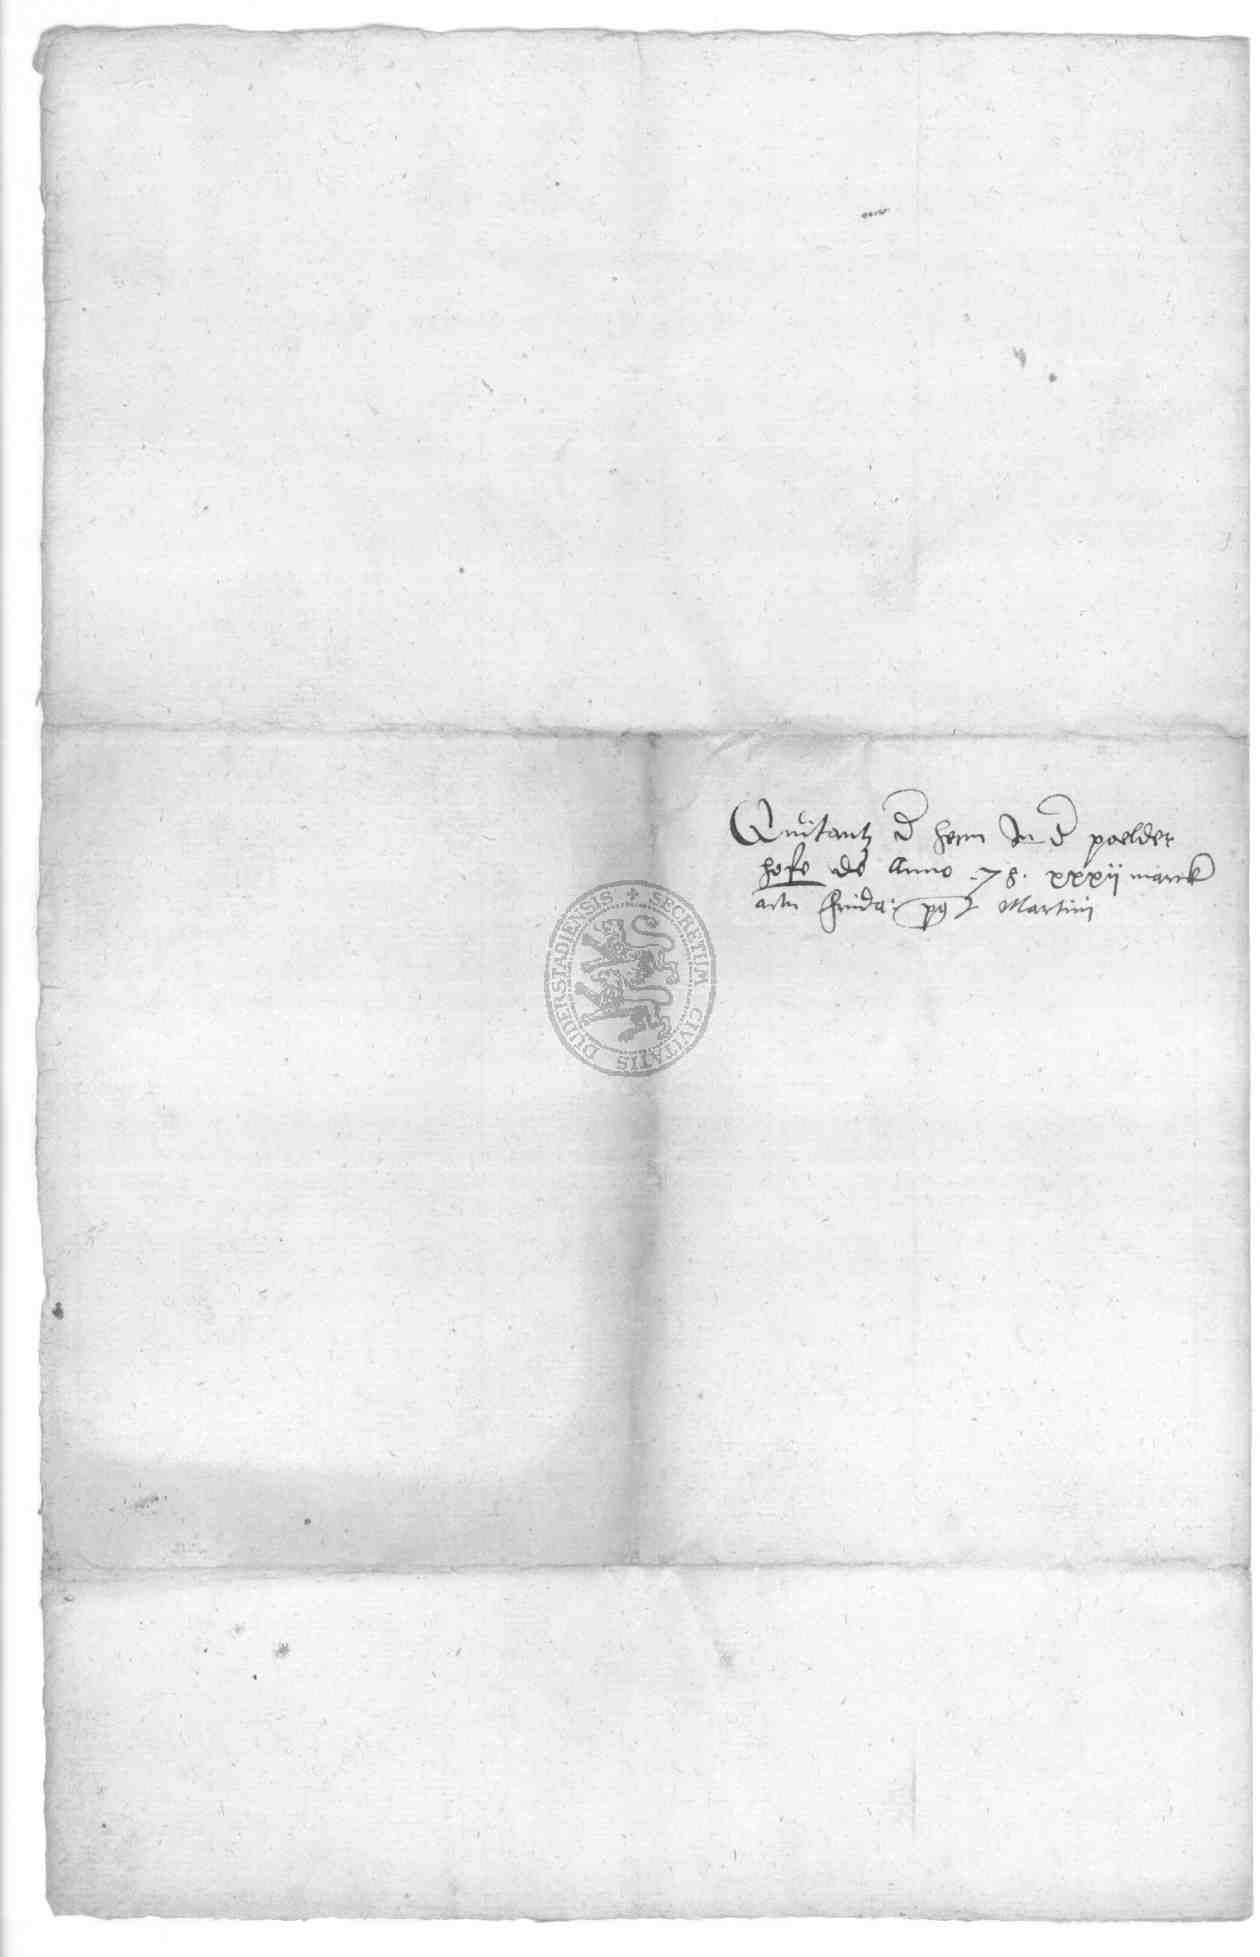 Quitantz d hern In d poelder
hofe de Anno .78. xxxij marck
actu Martini
SECRETUM CIVITATIS DUDERSTADIENSIS